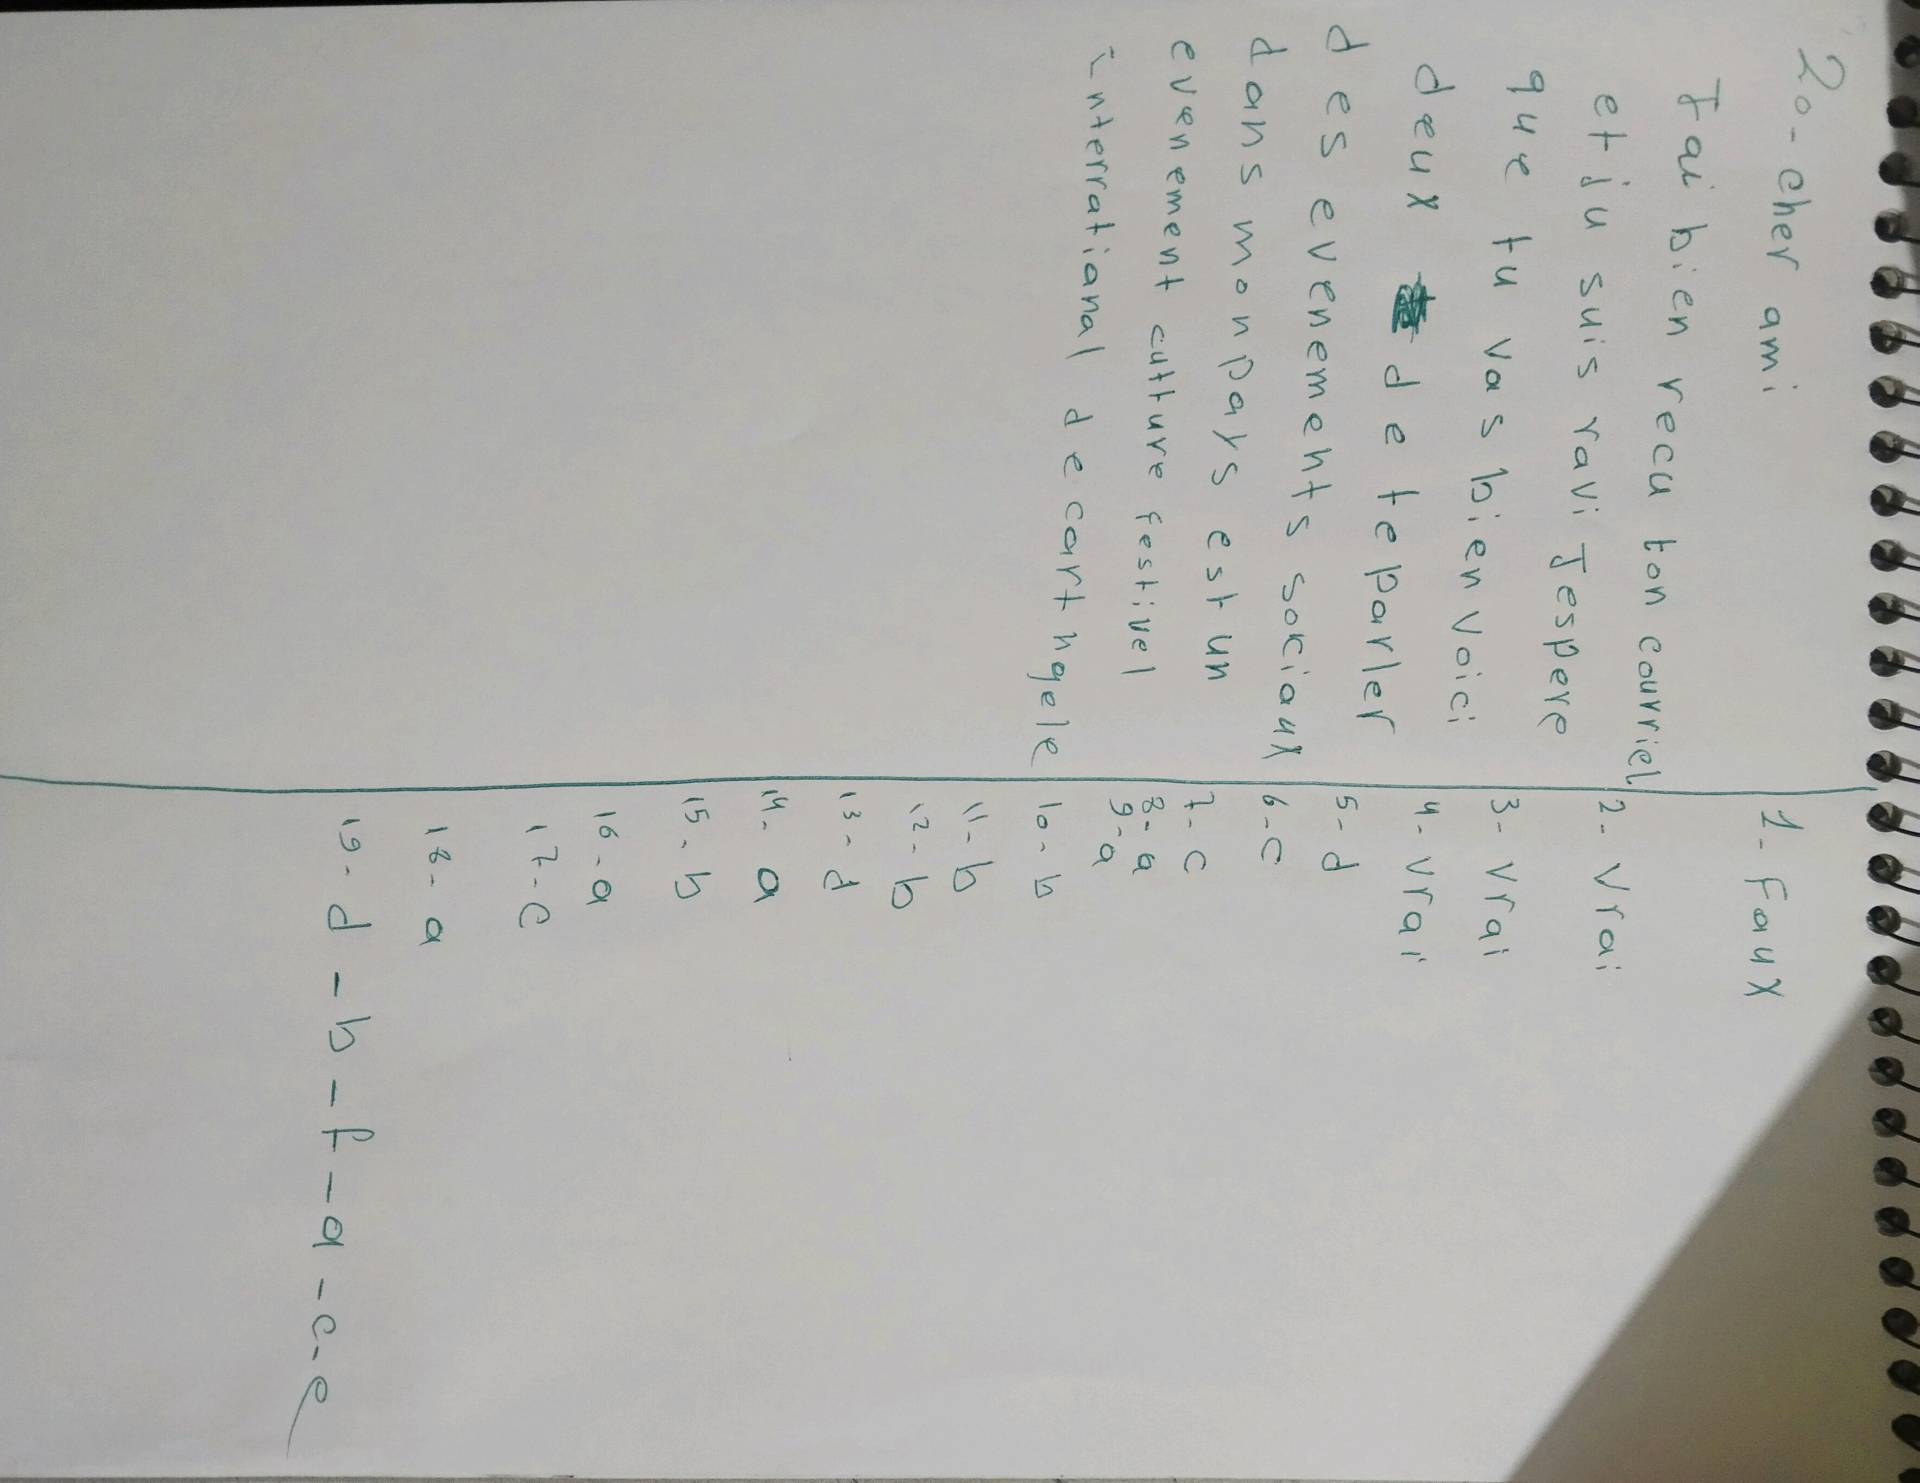 20-cher ami
Jai bien recu ton courriel
et ju suis ravi Jespere
que tu vas bien voici
deux de te parler
des evenements sociaux
dans mon pays est un
evenement culture festivel
interrational de carthgele
1- Faux
2- Vrai
3- Vrai
4- Vrai
5- d
6- c
7- c
8- a
9- a
10- b
11- b
12- b
13- d
14- a
15- b
16- a
17- c
18- a
19- d - b - f - a - c - e